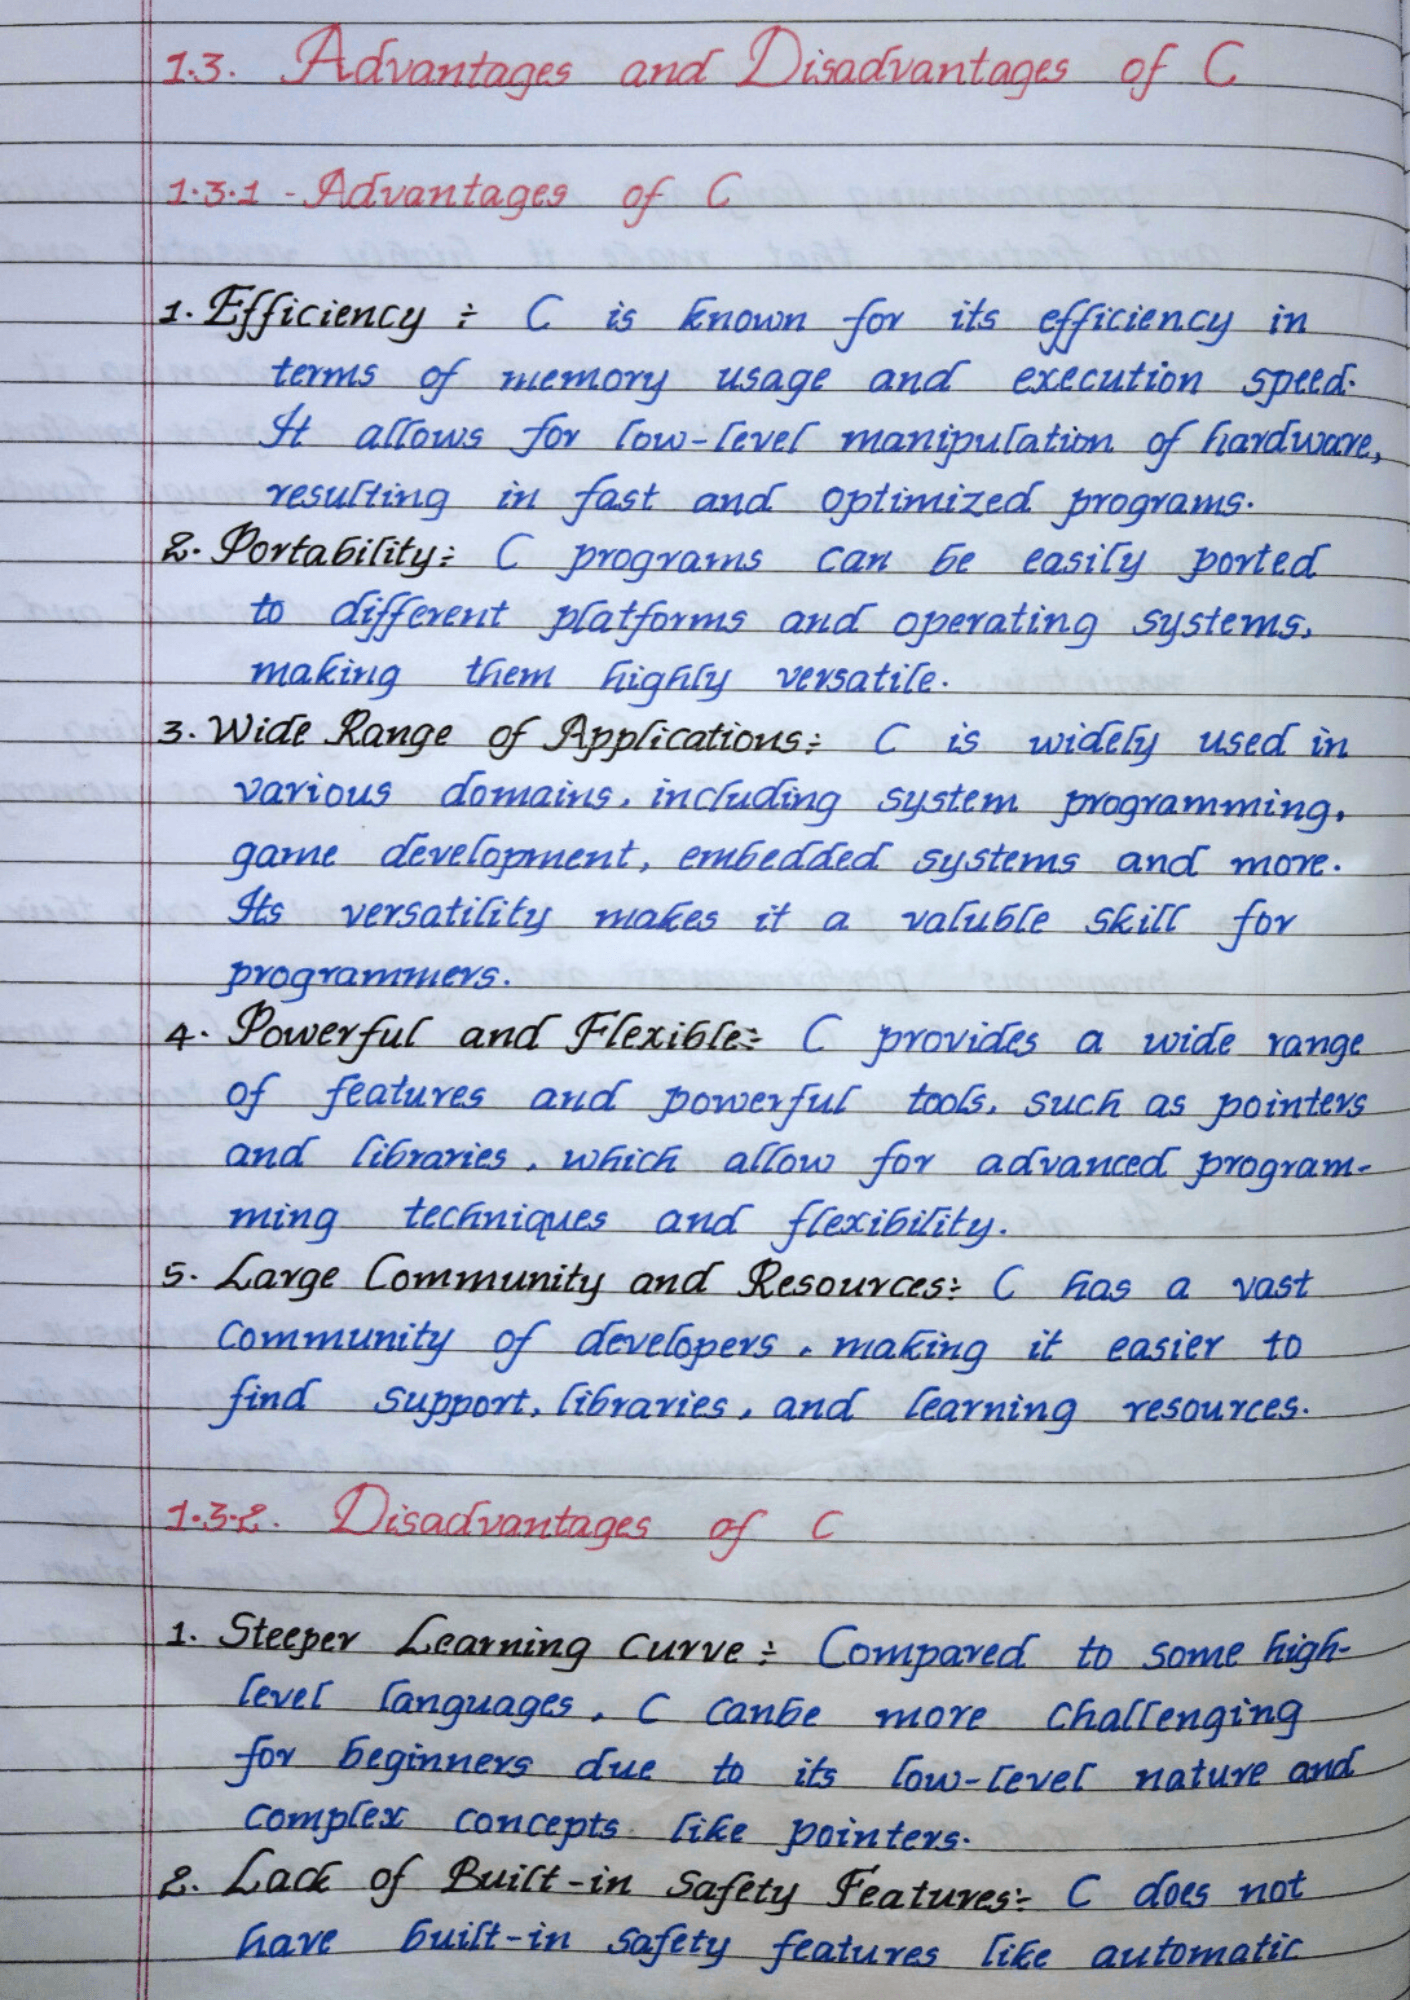 1.3. Advantages and Disadvantages of C
1.3.1 - Advantages of C
1. Efficiency ÷ C is known for its efficiency in
terms of memory usage and execution speed.
It allows for low-level manipulation of hardware,
resulting in fast and optimized programs.
2. Portability ÷ C programs can be easily ported
to different platforms and operating systems,
making them highly versatile.
3. Wide Range of Applications ÷ C is widely used in
various domains, including system programming,
game development, embedded systems and more.
Its versatility makes it a valuble skill for
programmers.
4. Powerful and Flexible ÷ C provides a wide range
of features and powerful tools, such as pointers
and libraries, which allow for advanced program-
ming techniques and flexibility.
5. Large Community and Resources ÷ C has a vast
community of developers, making it easier to
find support, libraries, and learning resources.
1.3.2. Disadvantages of C
1. Steeper Learning Curve ÷ Compared to some high-
level languages, C canbe more challenging
for beginners due to its low-level nature and
complex concepts like pointers.
2. Lack of Built-in Safety Features ÷ C does not
have built-in safety features like automatic